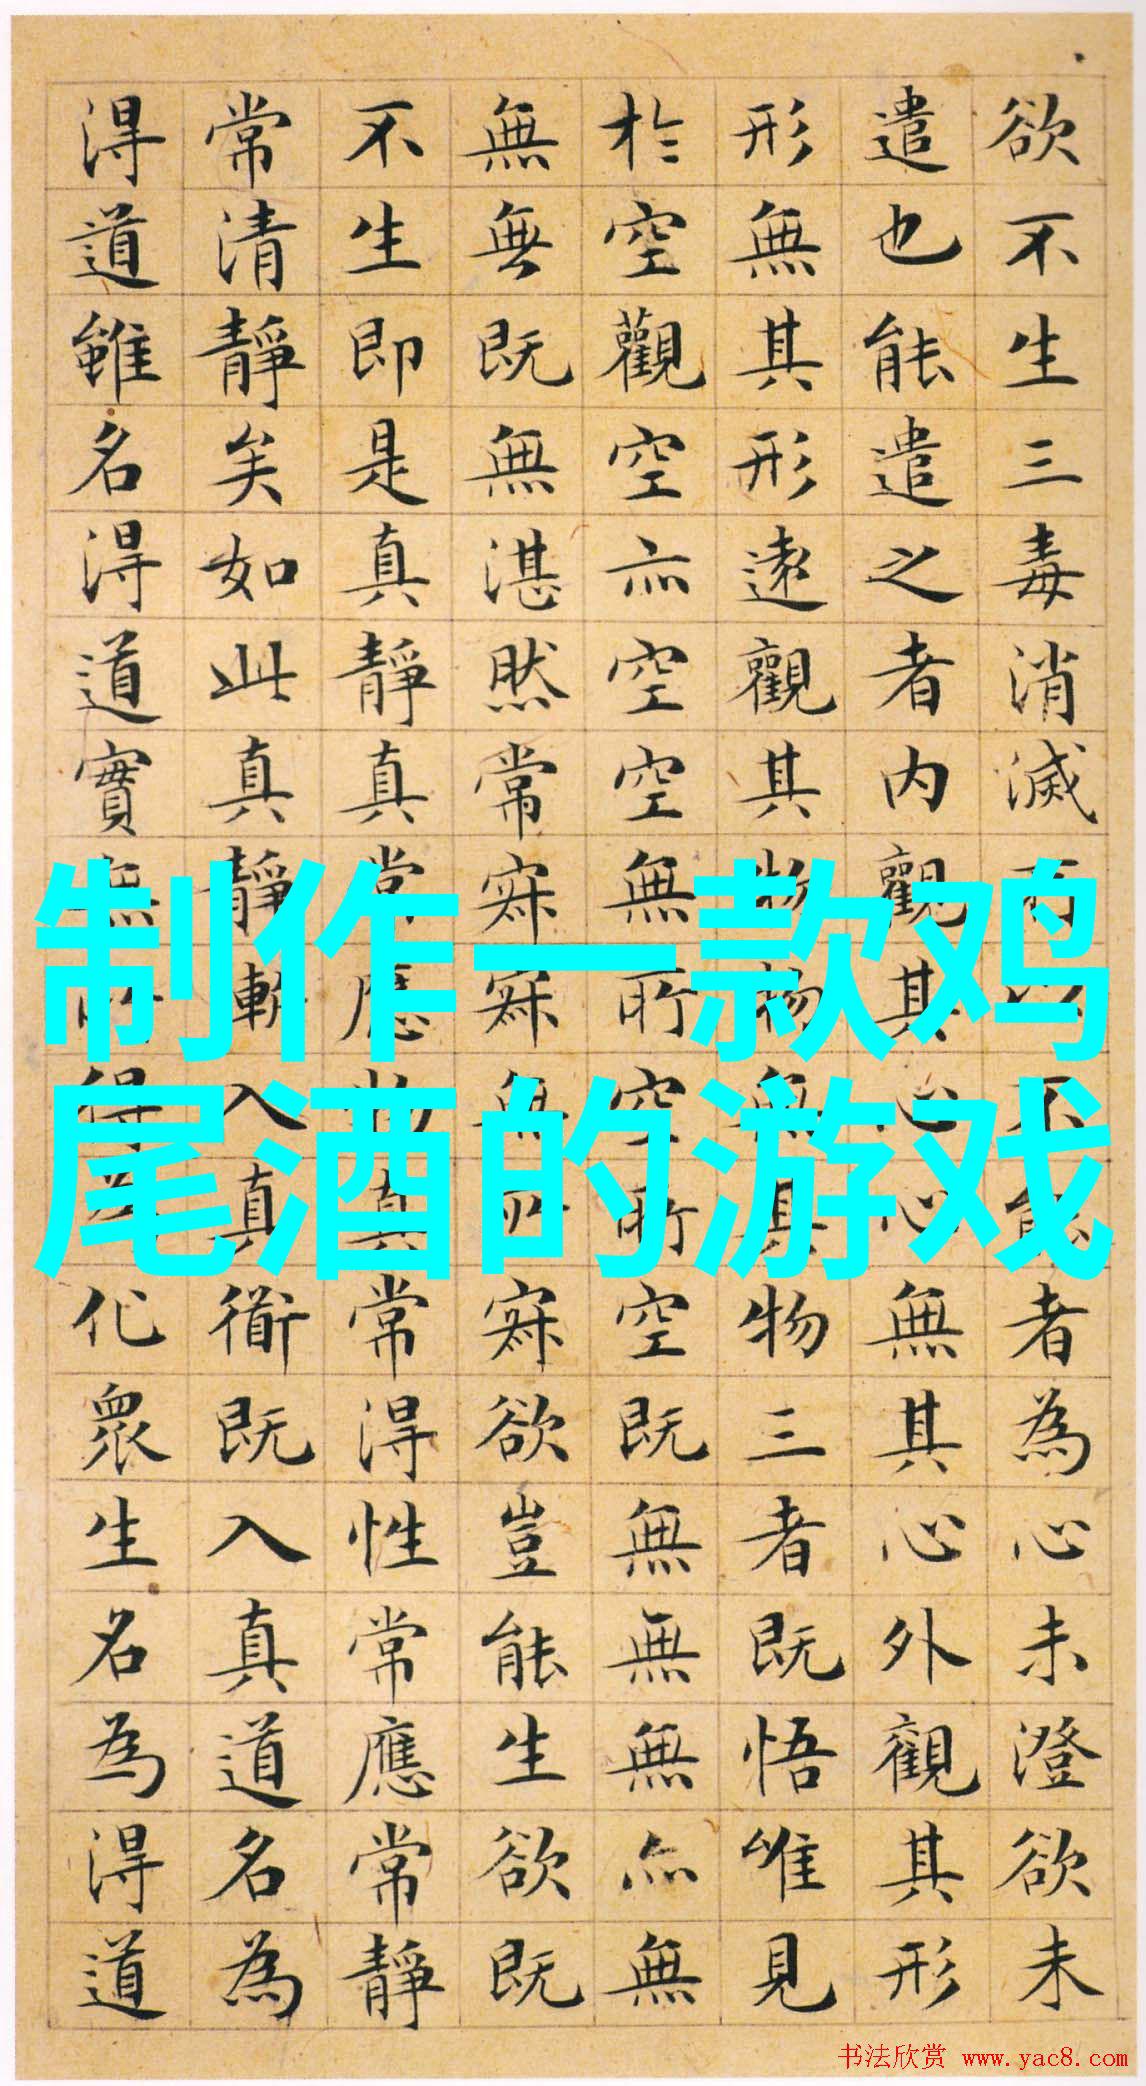 欲不生三毒消滅不能者為心未澄欲未
遣也能遣之者内觀其心心無其心外觀其形
形無其形遠觀其物物無其物三者既悟唯見
於空觀空亦空空無所空所空既無無無亦無
無無既無湛然常寂寂無所寂欲豈能生欲既
不生即是真靜真常應物真常得性常應常靜
常清靜矣如此真靜漸入真道既入真道名為
得道雖名得道實無所得為化眾生名為得道
制作一款鸡
尾酒的游戏
书法欣赏 www.yac8.com